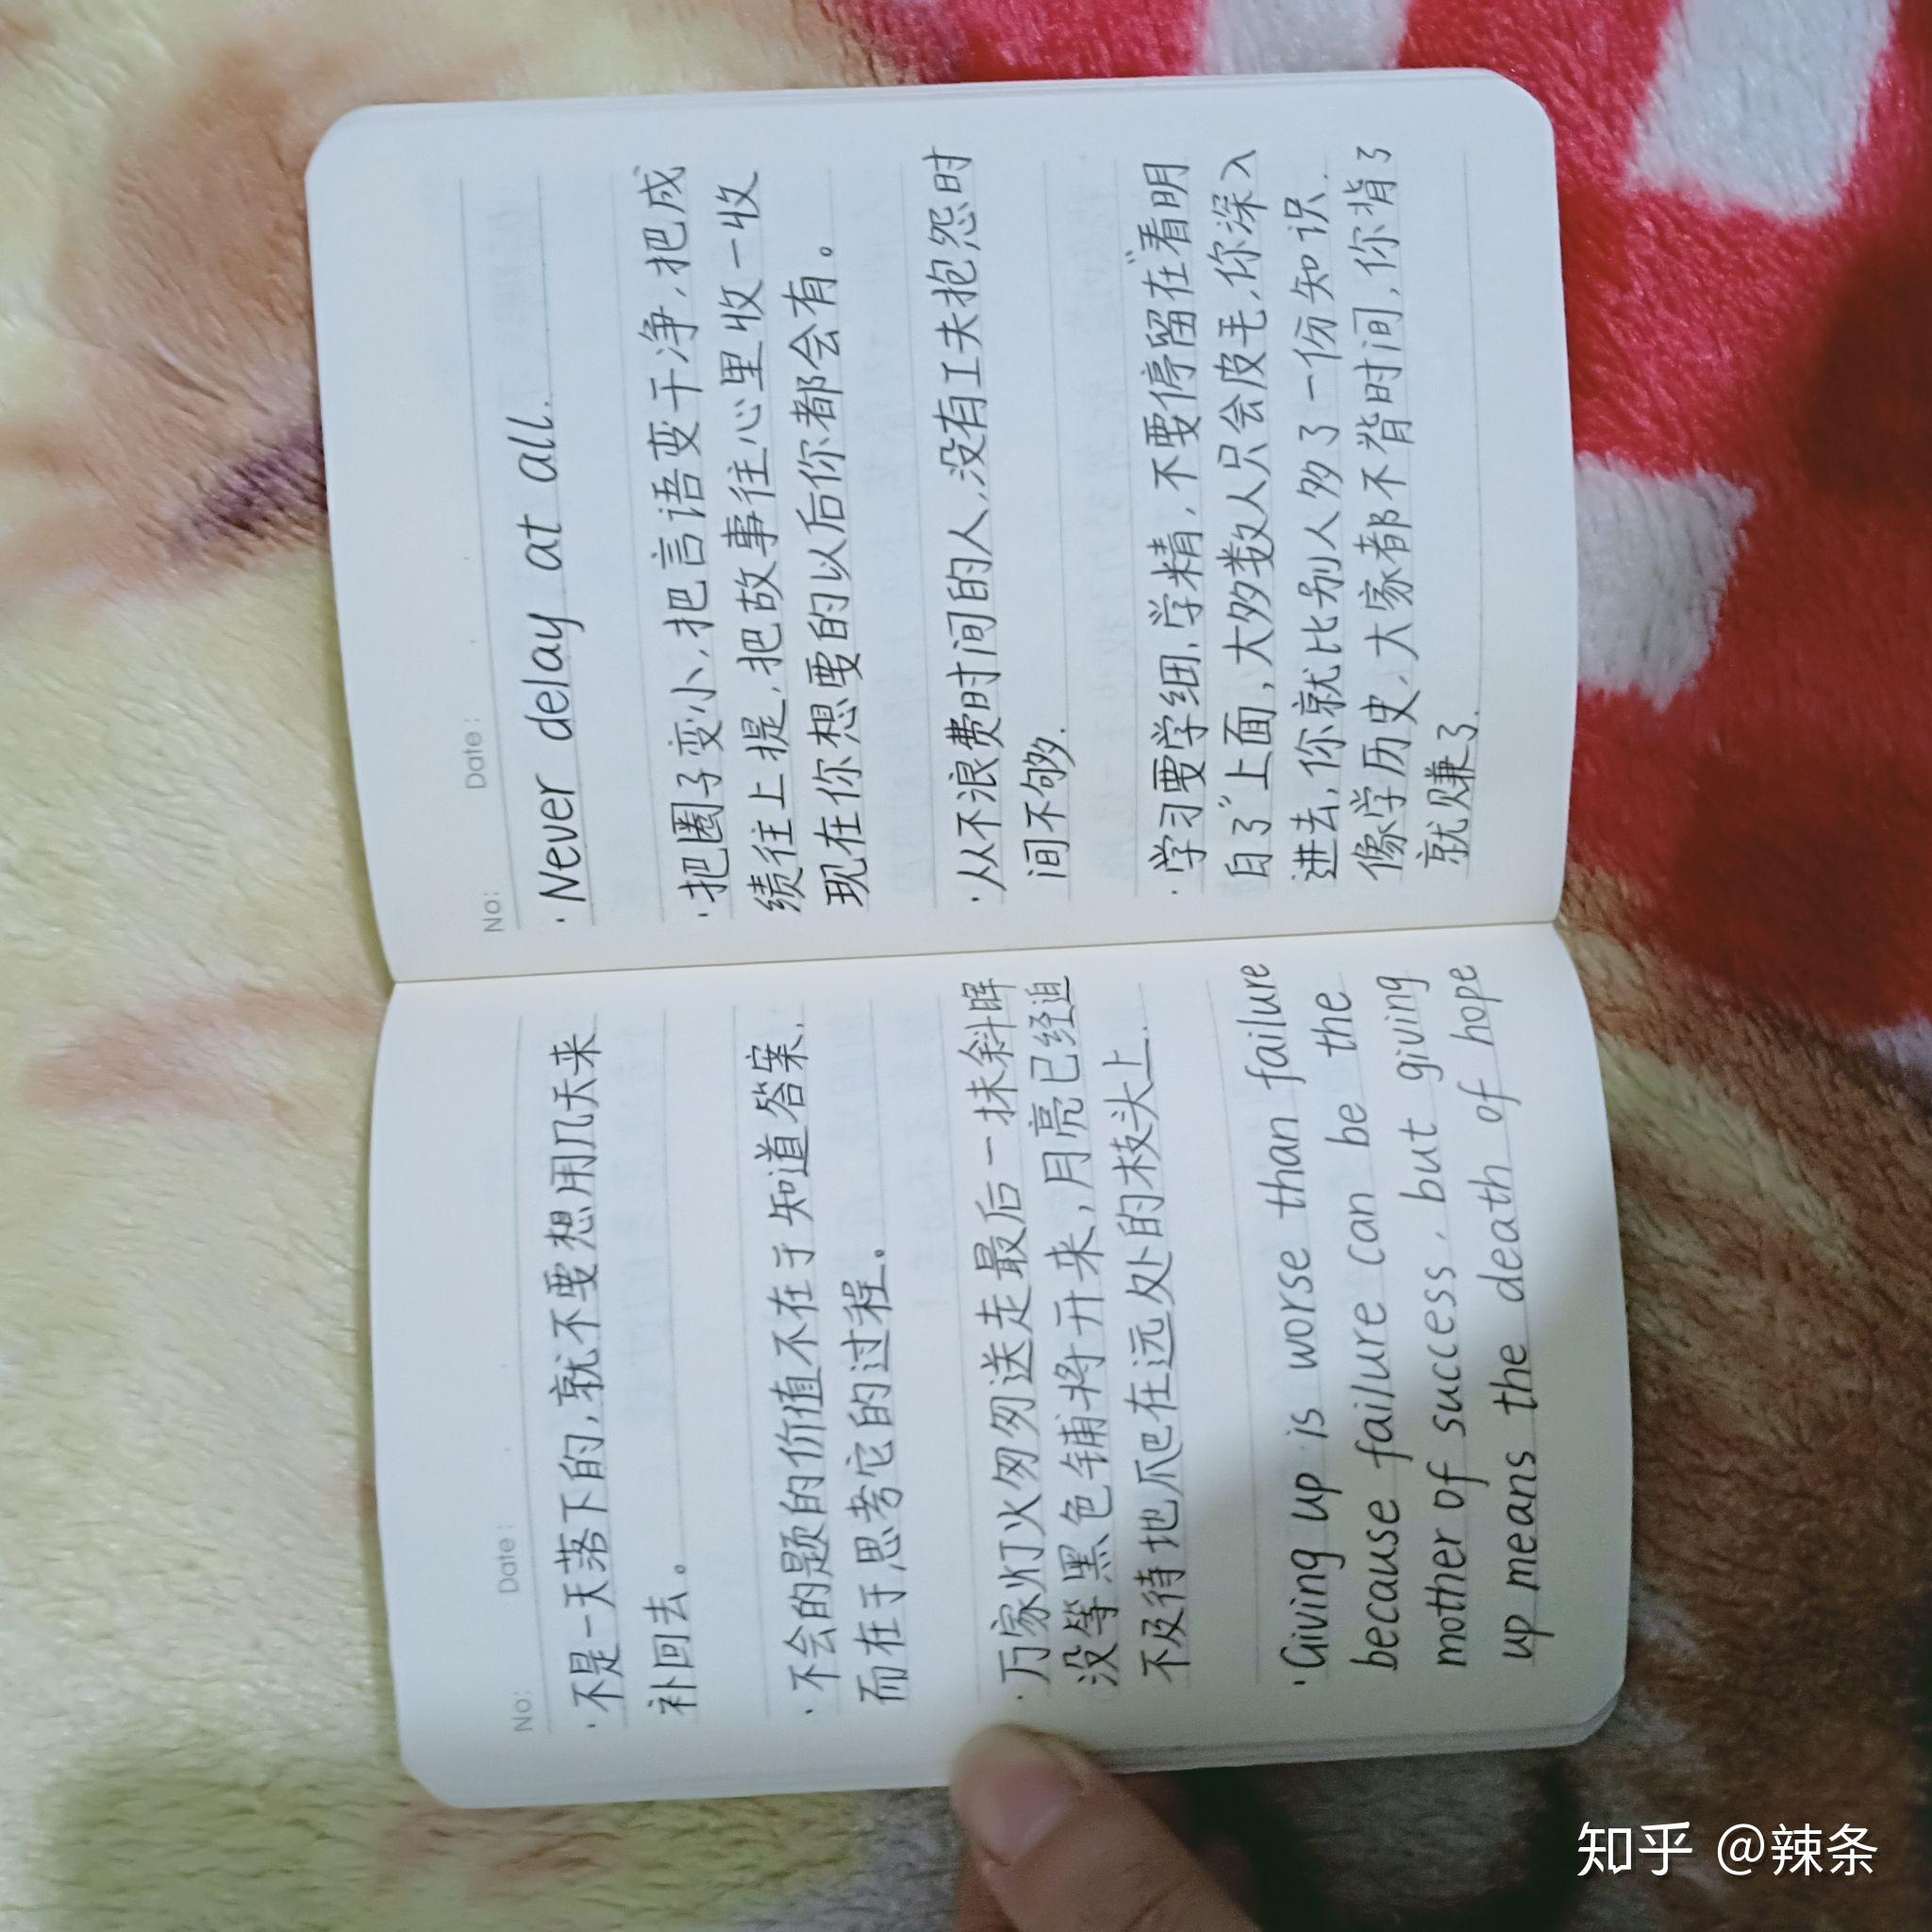 No: Date:
·不是一天落下的,就不要想用几天来
补回去。
·不会的题的价值不在于知道答案,
而在于思考它的过程。
·万家灯火匆匆送走最后一抹斜晖
没等黑色铺将开来,月亮已经迫
不及待地爬在远处的枝头上.
·Giving up is worse than failure
because failure can be the
mother of success, but giving
up means the death of hope
No: Date:
·Never delay at all.
·把圈子变小,把言语变干净,把成
绩往上提,把故事往心里收一收
现在你想要的以后你都会有。
·从不浪费时间的人,没有工夫抱怨时
间不够.
·学习要学细,学精,不要停留在“看明
白了”上面,大多数人只会皮毛,你深入
进去,你就比别人多了一份知识.
像学历史,大家都不背时间,你背了
就赚了.
知乎 @辣条